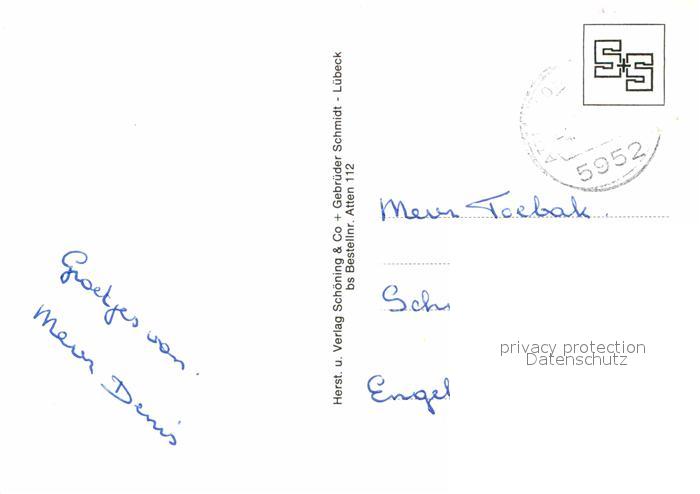 Groetjes van
Mevr Denis
Herst. u. Verlag Schöning & Co + Gebrüder Schmidt - Lübeck
bs Bestellnr. Atten 112
S+S
5952
Mevr Toebak.
Sch
Engel
privacy protection
Datenschutz